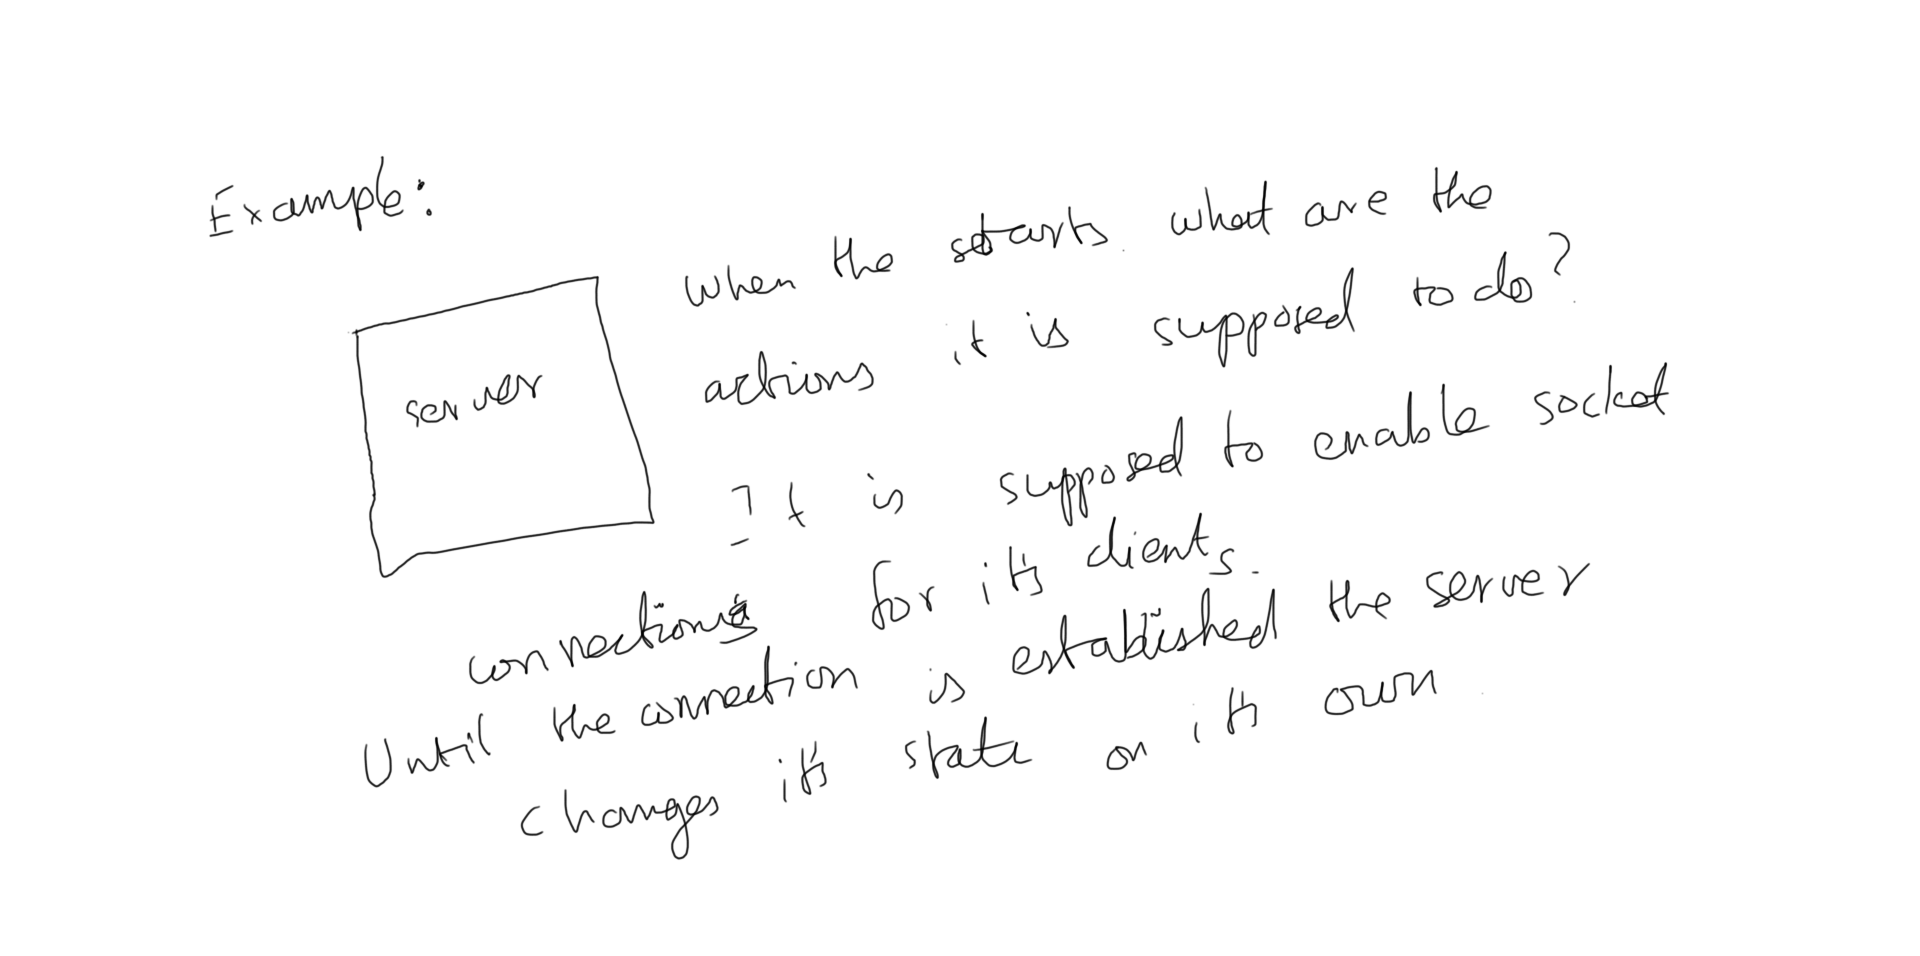 Example:
when the starts what are the
actions it is supposed to do?
server
It is supposed to enable socket
connections for it's clients.
Until the connection is established the server
changes it's state on it's own